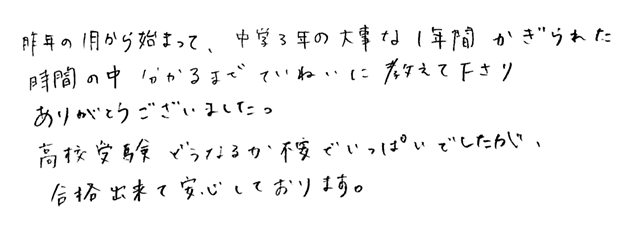 昨年の1月から始まって、中学3年の大事な1年間かぎられた
時間の中 分かるまでていねいに教えて下さり
ありがとうございました。
高校受験どうなるか不安でいっぱいでしたが、
合格出来て安心しております。